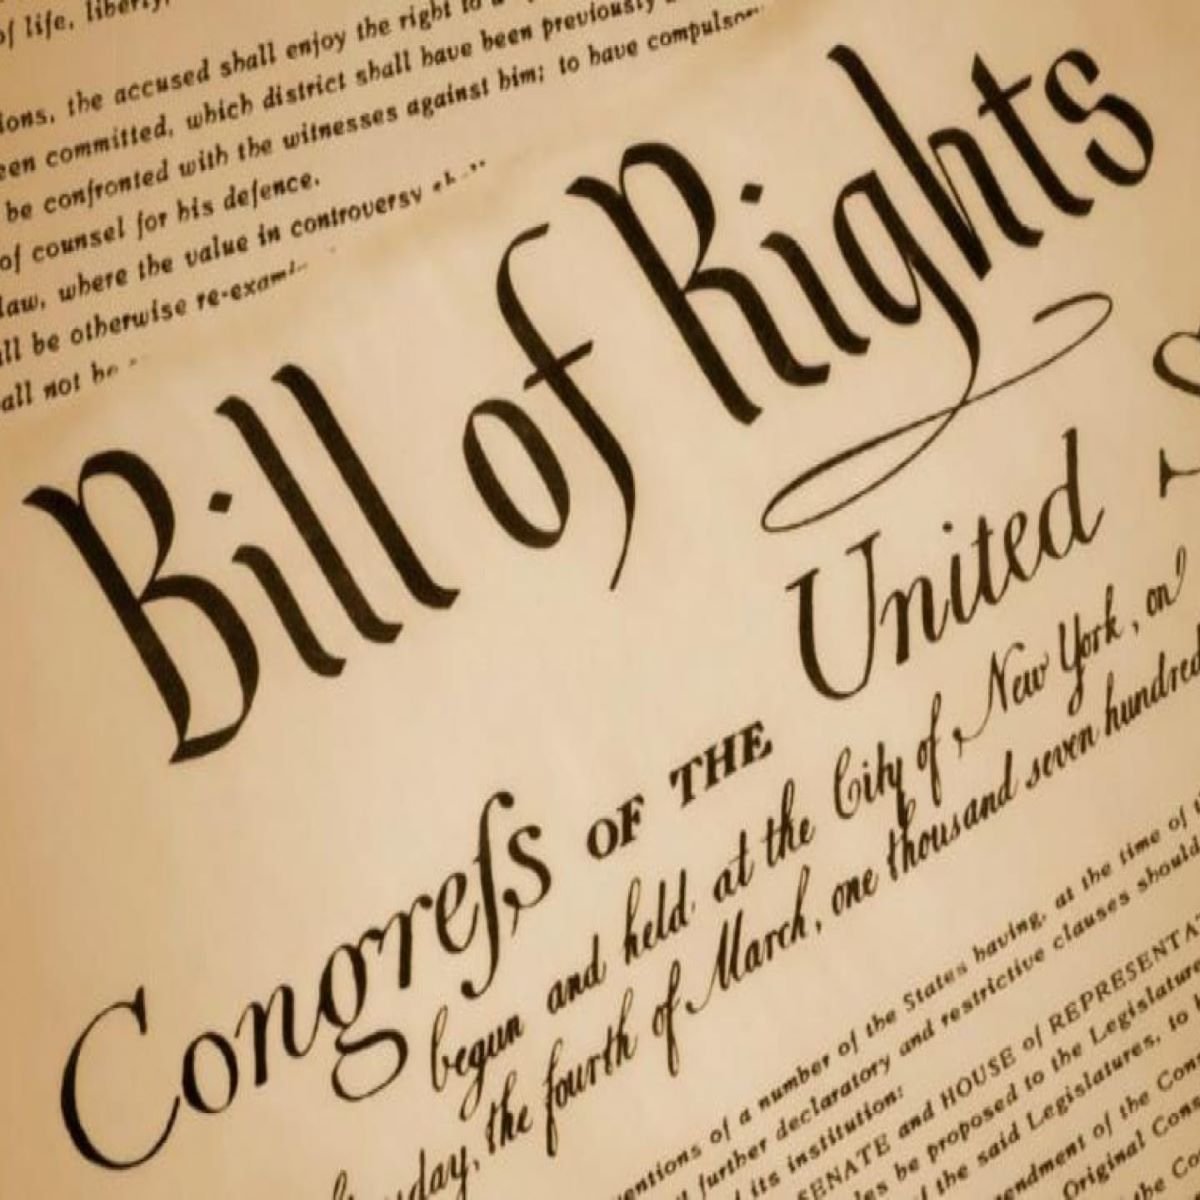 of life, liberty,
the accused shall enjoy the right to
been committed, which district shall have been previously
be confronted with the witnesses against him; to have
of counsel for his defence.
law, where the value in controversy
be otherwise
not be
Bill of Rights
Congreſs OF THE United
begun and held at the City of New York, on
the fourth of March, one thousand seven hundred
of a number of the States having, at the time of
further declaratory and restrictive clauses should
its institution:
SENATE and HOUSE of
be proposed to the
the said Legislatures, to
of the
Original